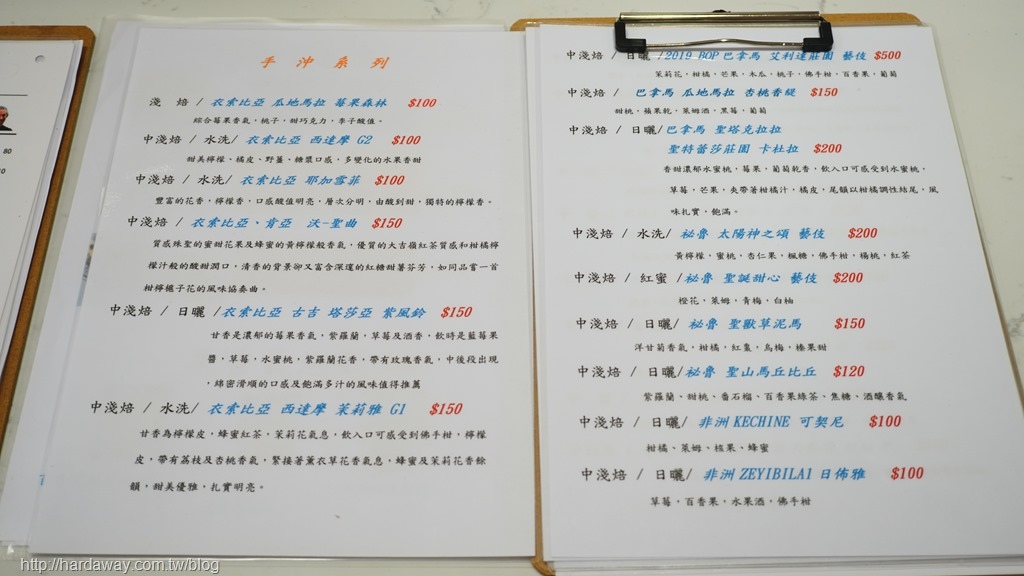 80
0
手沖系列
淺 焙 / 衣索比亞 瓜地馬拉 莓果森林 $100
綜合莓果香氣，桃子，甜巧克力，李子酸值。
中淺焙 / 水洗/ 衣索比亞 西達摩 G2 $100
甜美檸檬、橘皮，野薑、糖漿口感，多變化的水果香甜
中淺焙 / 水洗/ 衣索比亞 耶加雪菲 $100
豐富的花香，檸檬香，口感酸值明亮，層次分明，由酸到甜，獨特的檸檬香。
中淺焙 / 衣索比亞、肯亞 沃-聖曲 $150
質感殊聖的蜜甜花果及蜂蜜的黃檸檬般香氣，優質的大吉嶺紅茶質感和柑橘檸
檬汁般的酸甜潤口，清香的背景卻又富含深邃的紅糖甜薯芬芳，如同品嘗一首
柑檸梔子花的風味協奏曲。
中淺焙 / 日曬 /衣索比亞 古吉 塔莎亞 紫風鈴 $150
甘香是濃郁的莓果香氣，紫羅蘭，草莓及酒香，飲時是藍莓果
醬，草莓，水蜜桃，紫羅蘭花香，帶有玫瑰香氣，中後段出現
，綿密滑順的口感及飽滿多汁的風味值得推薦
中淺焙 / 水洗/ 衣索比亞 西達摩 茉莉雅 G1 $150
甘香為檸檬皮，蜂蜜紅茶，茉莉花氣息，飲入口可感受到佛手柑，檸檬
皮，帶有荔枝及杏桃香氣，緊接著薰衣草花香氣息，蜂蜜及茉莉花香餘
韻，甜美優雅，扎實明亮。
中淺焙 / 日曬 /2019 BOP 巴拿馬 艾利達莊園 藝伎 $500
茉莉花，柑橘，芒果，木瓜，桃子，佛手柑，百香果，葡萄
中淺焙 / 巴拿馬 瓜地馬拉 杏桃香緹 $150
甜桃，蘋果乾，萊姆酒，黑莓、葡萄
中淺焙 / 日曬/巴拿馬 聖塔克拉拉
聖特蕾莎莊園 卡杜拉 $200
香甜濃郁水蜜桃，莓果，葡萄乾香，飲入口可感受到水蜜桃，
草莓，芒果，夾帶著柑橘汁，橘皮，尾韻以柑橘調性結尾，風
味扎實，飽滿。
中淺焙 / 水洗/ 祕魯 太陽神之頌 藝伎 $200
黃檸檬，蜜桃，杏仁果，楓糖，佛手柑，楊桃，紅茶
中淺焙 / 紅蜜 /祕魯 聖誕甜心 藝伎 $200
橙花，萊姆，青梅，白柚
中淺焙 / 日曬/ 祕魯 聖獸草泥馬 $150
洋甘菊香氣，柑橘，紅棗，烏梅，榛果甜
中淺焙 / 日曬/祕魯 聖山馬丘比丘 $120
紫羅蘭、甜桃、番石榴、百香果綠茶、焦糖、酒釀香氣
中淺焙 / 日曬/ 非洲 KECHINE 可契尼 $100
柑橘、萊姆、桂果、蜂蜜
中淺焙 / 日曬/ 非洲 ZEYIBILA1 日佈雅 $100
草莓，百香果，水果酒，佛手柑
http://hardaway.com.tw/blog